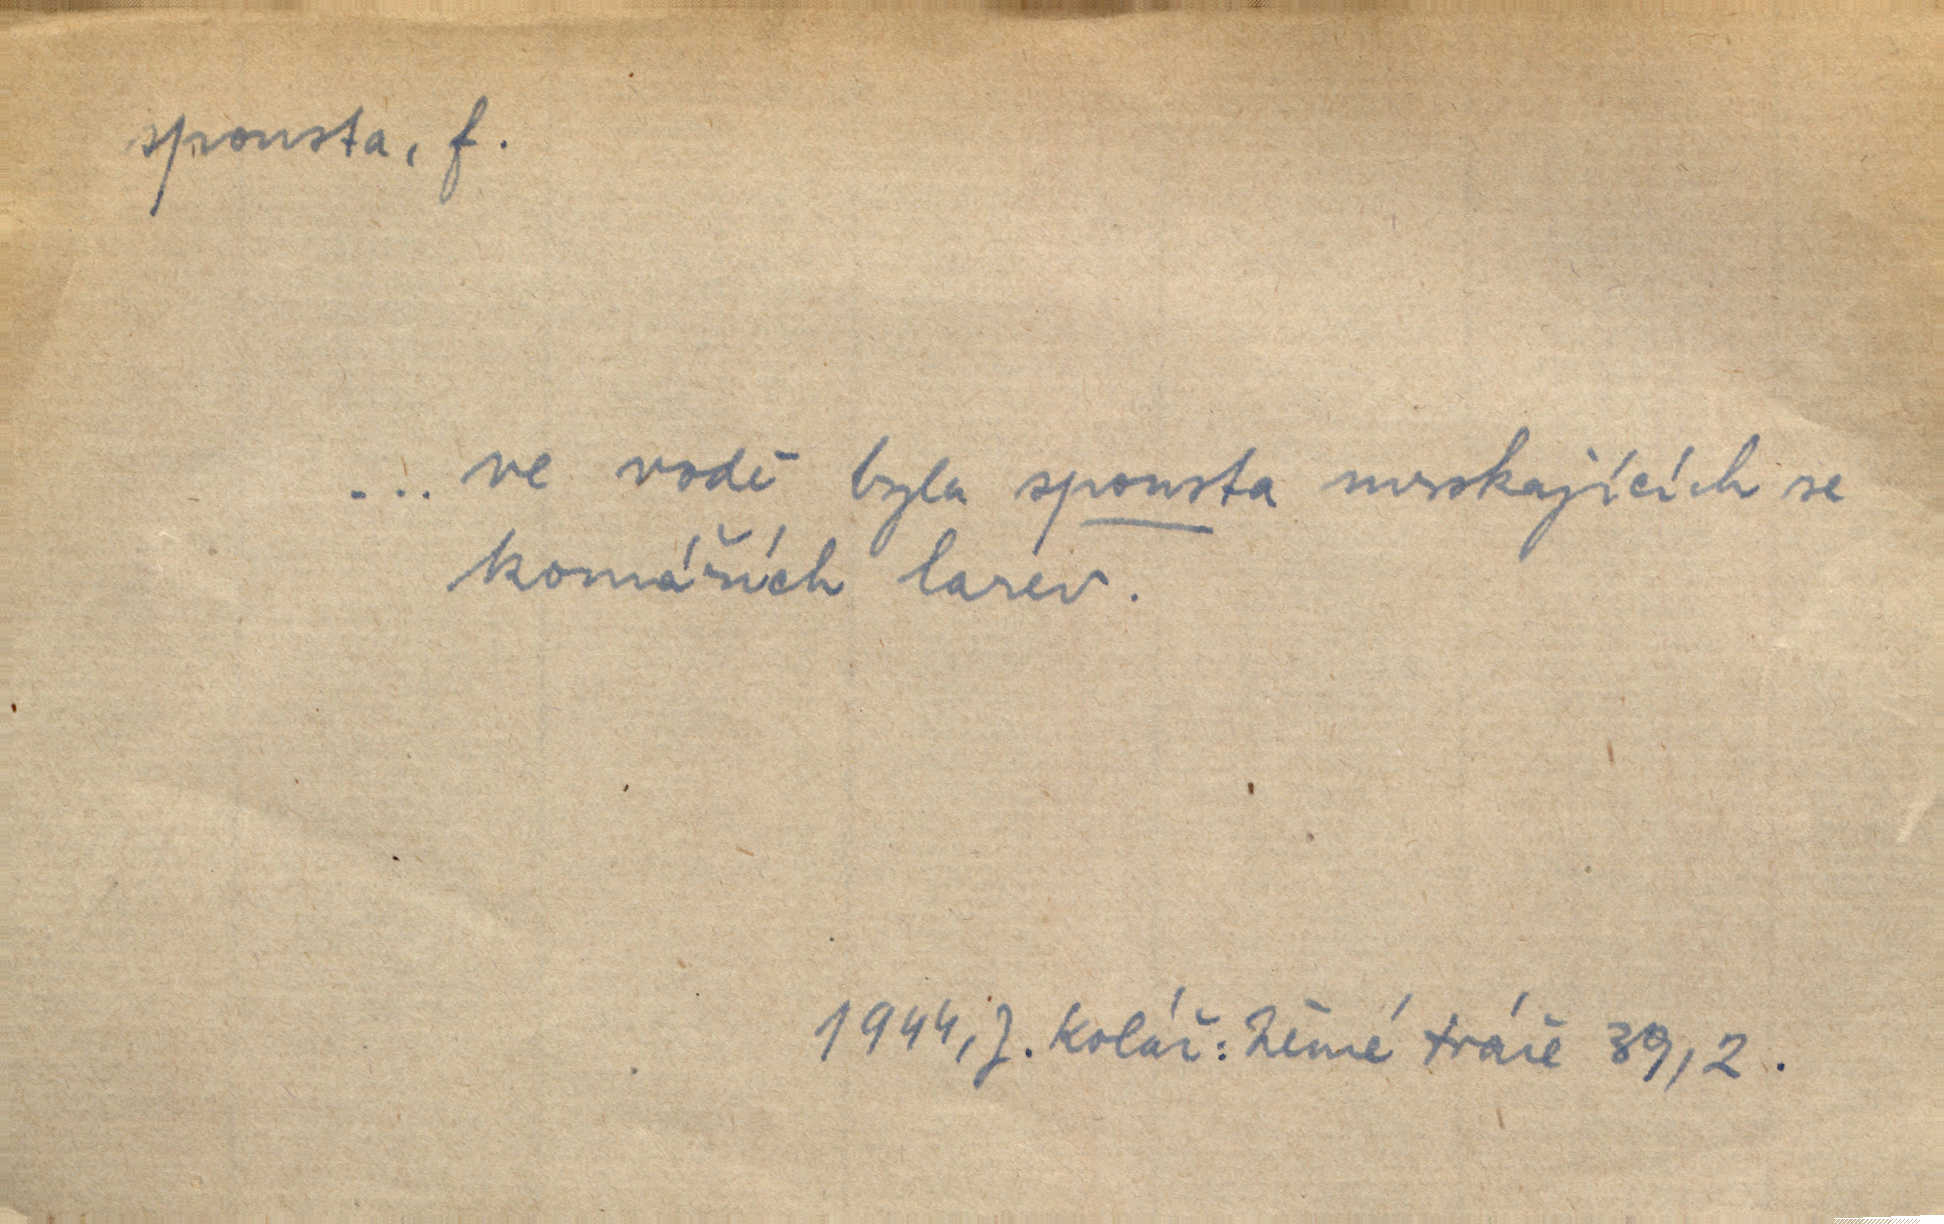 spousta, f.
... ve vodě byla spousta mrskajících se
komářích larev.
1944, J. Kolář: Němé tváře 39, 2.